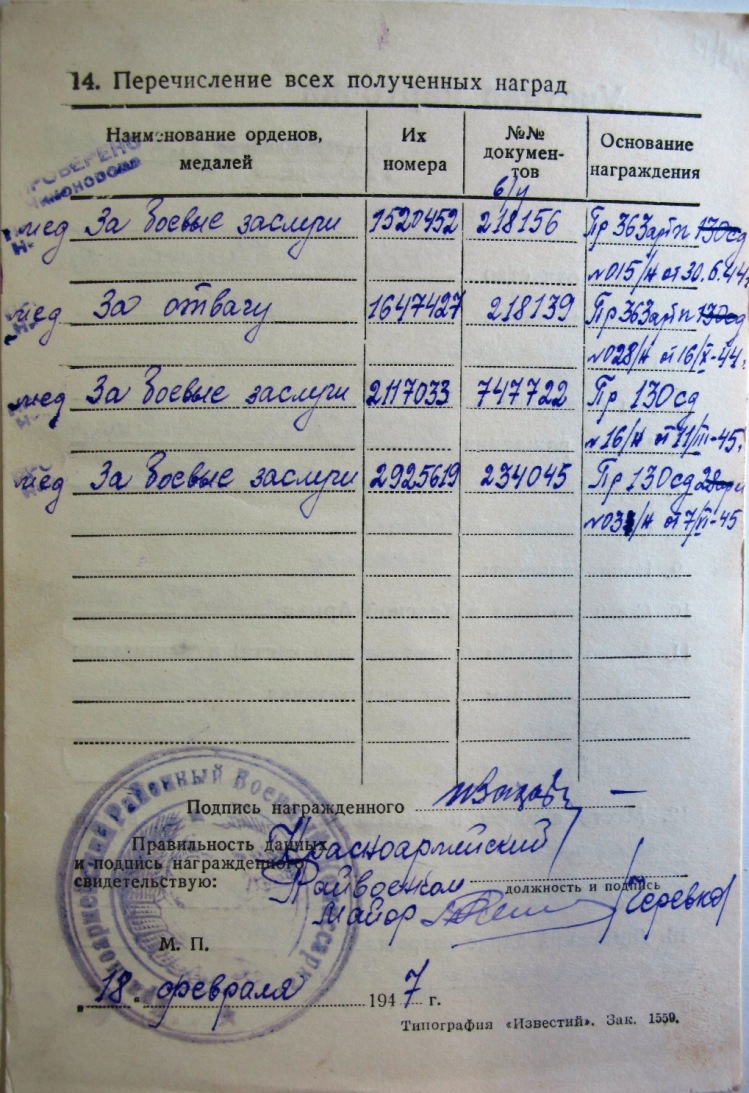 14. Перечисление всех полученных наград
Наименование орденов, медалей
Их номера
№№ документов
Основание награждения
ПРОВЕРЕНО
б/н
мед За боевые заслуги 1520452 218156 Пр 363 артп 130сд
№015/н от 30.6.44г
мед За отвагу 1647427 218139 Пр 363 артп 130сд
№028/н от 16/X-44г.
мед За боевые заслуги 2117033 747722 Пр 130сд
№16/н от 11/III-45г.
мед За боевые заслуги 2925619 234045 Пр 130сд
от 7/VI-45
Подпись награжденного
Правильность данных
и подпись награжденного
свидетельствую:
Красноармейский
Райвоенком
должность и подпись
Майор
М. П.
„18“ февраля 1947 г.
Типография «Известий». Зак. 1559.